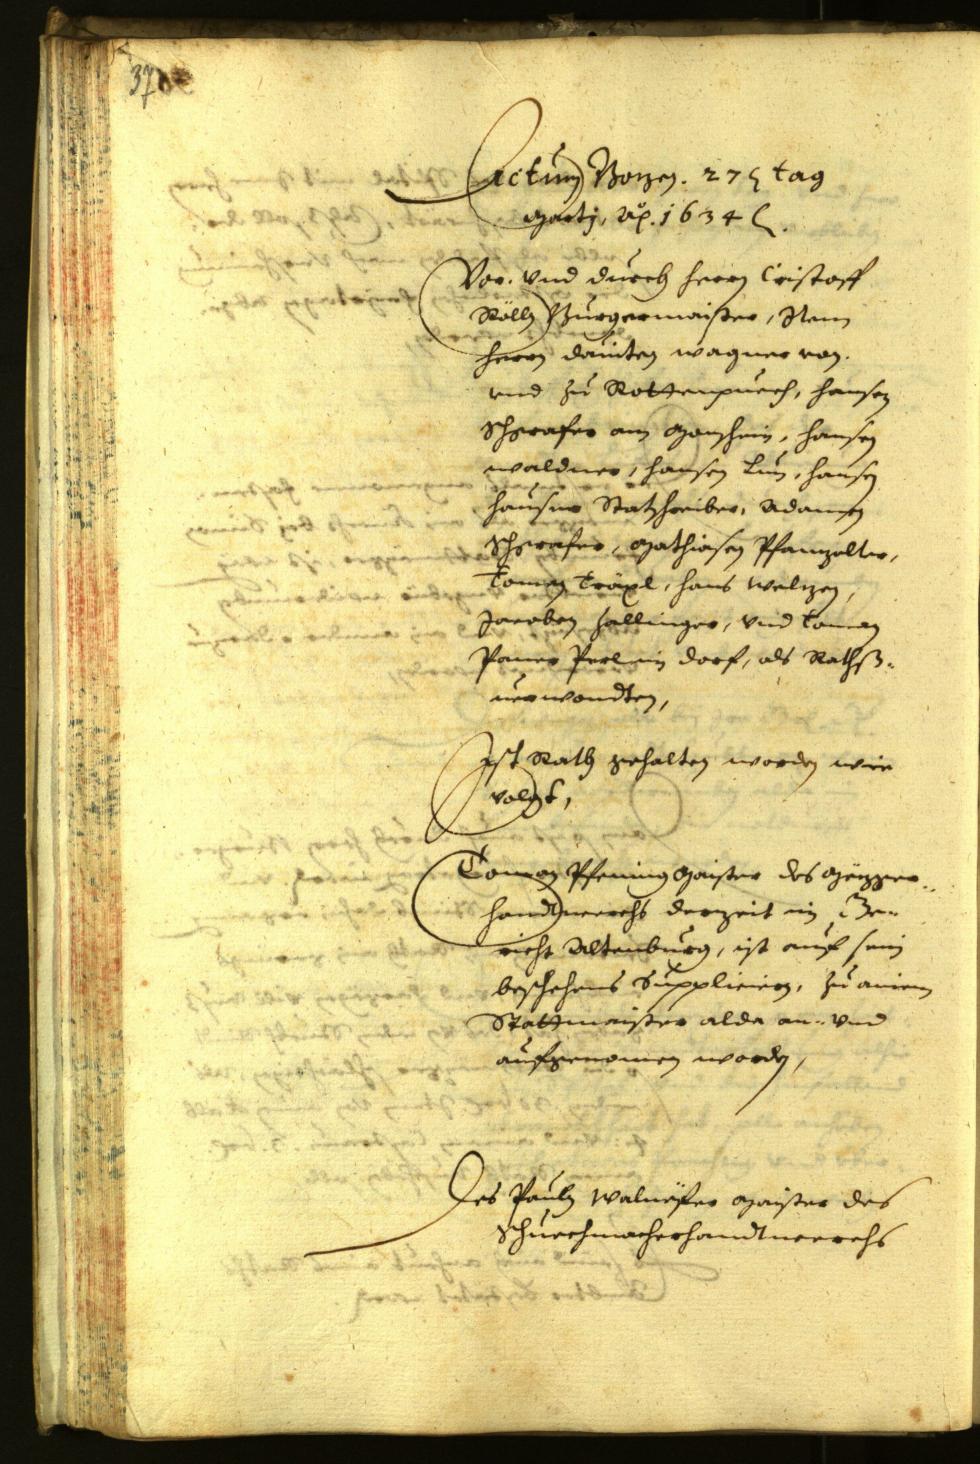 37
Actum Bozen. 27 tag
Martij, Ao. 1634
Vor. vnd durch herrn Cristoff
Röllr Burgermaister, Item
herrn dauiten wagner von.
vnd zu Rottenpuech, hansen
Schgrafer am Manshein, hansen
waldner, hansen Lun, hansen
hauser Statschreiber, Adamen
Schgrafer, Mathiasen Pfanzelter,
Toman Träxl, hans Welzen,
Jacoben Hallinger, vnd Toman
Paur Perl im dorf, als Rathß-
uerwondten,
Ist Rath gehalten worden wie
volgt,
Toman Pfening Maister des Mezger-
handtwerchs derzeit in Ge-
richt Altenburg, ist auf sein
beschehens Suppliciern, zu ainem
Stattmaister alda an- vnd
aufgenomen worden,
Des Pauln Walneÿser Maister des
Schuechmacherhandtwerchs